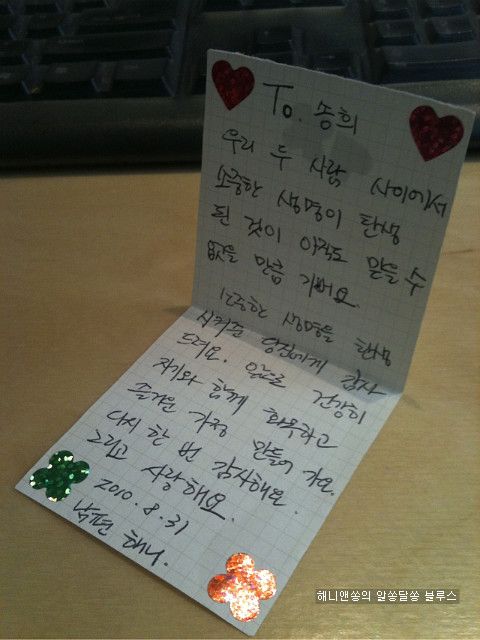 To. 송희
우리 두 사람 사이에서
소중한 생명이 탄생
된 것이 아직도 믿을 수
없을 만큼 기뻐요.
소중한 생명을 탄생
시켜준 당신에게 감사
드려요. 앞으로 건강히
자기와 함께 화목하고
즐거운 가정 만들어 가요.
다시 한 번 감사해요.
그리고 사랑해요.
2010.8.31
남편 해니.
해니앤쏭의 알쏭달쏭 블루스